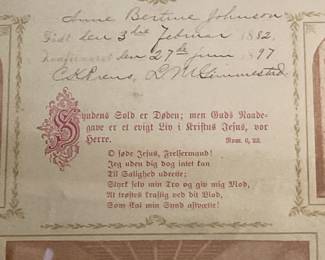 Anne Bertine Johnson
Født den 3die Februar 1882,
konfirmeret den 27de Juni 1897
D. M. Gimmestad.
Syndens Sold er Døden; men Guds Naade-
gave er et evigt Liv i Kristus Jesus, vor
Herre.
Rom. 6, 23.
O søde Jesus, Frelsermand!
Jeg uden dig dog intet kan
Til Salighed udrette;
Styrk selv min Tro og giv mig Mod,
At trøstes kraftig ved dit Blod,
Som skal min Synd aftvætte!